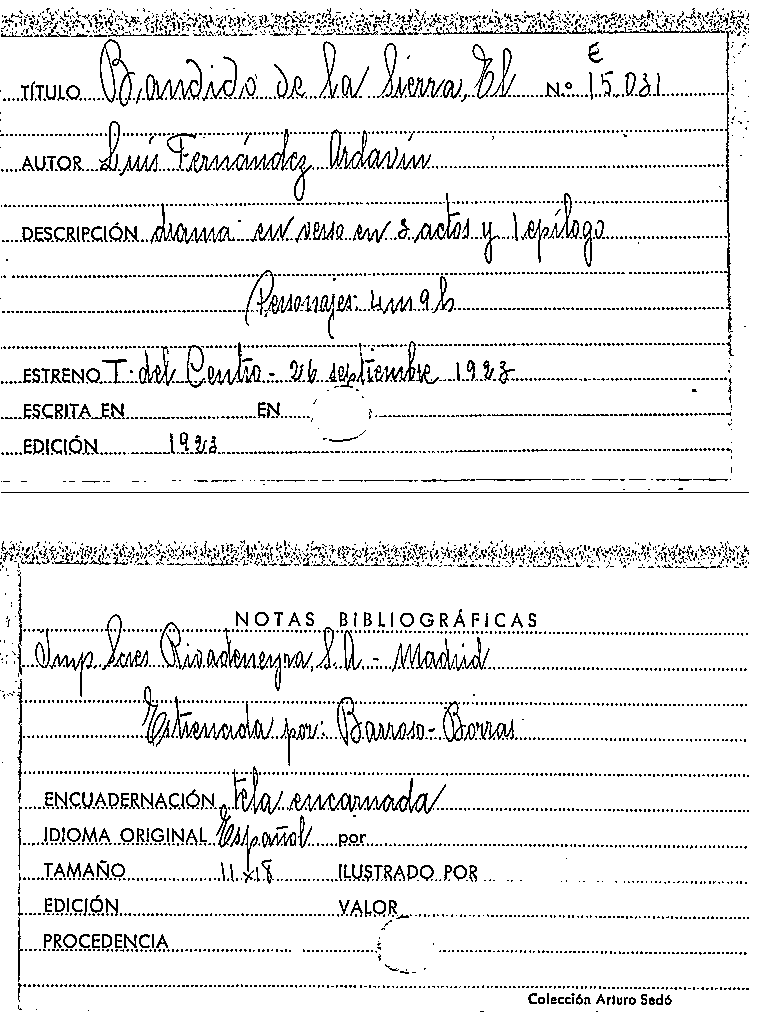 E
TÍTULO Bandido de la Sierra, El N.º 15.031
AUTOR Luis Fernández Ardavín
DESCRIPCIÓN drama en verso en 3 actos y 1 epílogo
Personajes: 4 m 9 h
ESTRENO T. del Centro - 26 septiembre 1923
ESCRITA EN EN
EDICIÓN 1923
NOTAS BIBLIOGRÁFICAS
Imp. Sucs Rivadeneyra, S.A. - Madrid
Estrenada por: Barroso - Borras
ENCUADERNACIÓN tela encarnada
IDIOMA ORIGINAL Español por
TAMAÑO 11 x 18 ILUSTRADO POR
EDICIÓN VALOR
PROCEDENCIA
Colección Arturo Sedó